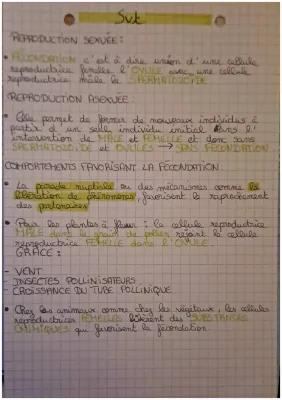 Svt
REPRODUCTION SEXUÉE :
• FÉCONDATION c'est à dire union d'une cellule
reproductrice femelle l'OVULE avec une cellule
reproductrice mâle le SPERMATOZOÏDE
REPRODUCTION ASEXUÉE :
• Elle permet de former de nouveaux individus à
partir d'un seul individu initial sans l'
intervention de MÂLE et FEMELLE et donc sans
SPERMATOZOÏDE et OVULES → SANS FÉCONDATION
COMPORTEMENTS FAVORISANT LA FÉCONDATION :
• La parade nuptiale ou des mécanismes comme la
libération de phéromones, favorisent le rapprochement
des partenaires
• Pour les plantes à fleur : la cellule reproductrice
MÂLE dans le grain de pollen rejoint la cellule
reproductrice FEMELLE dans l'OVULE
GRÂCE :
- VENT
- INSECTES POLLINISATEURS
- CROISSANCE DU TUBE POLLINIQUE
• Chez les animaux comme chez les végétaux, les cellules
reproductrices FEMELLES libèrent des SUBSTANCES
CHIMIQUES qui favorisent la fécondation